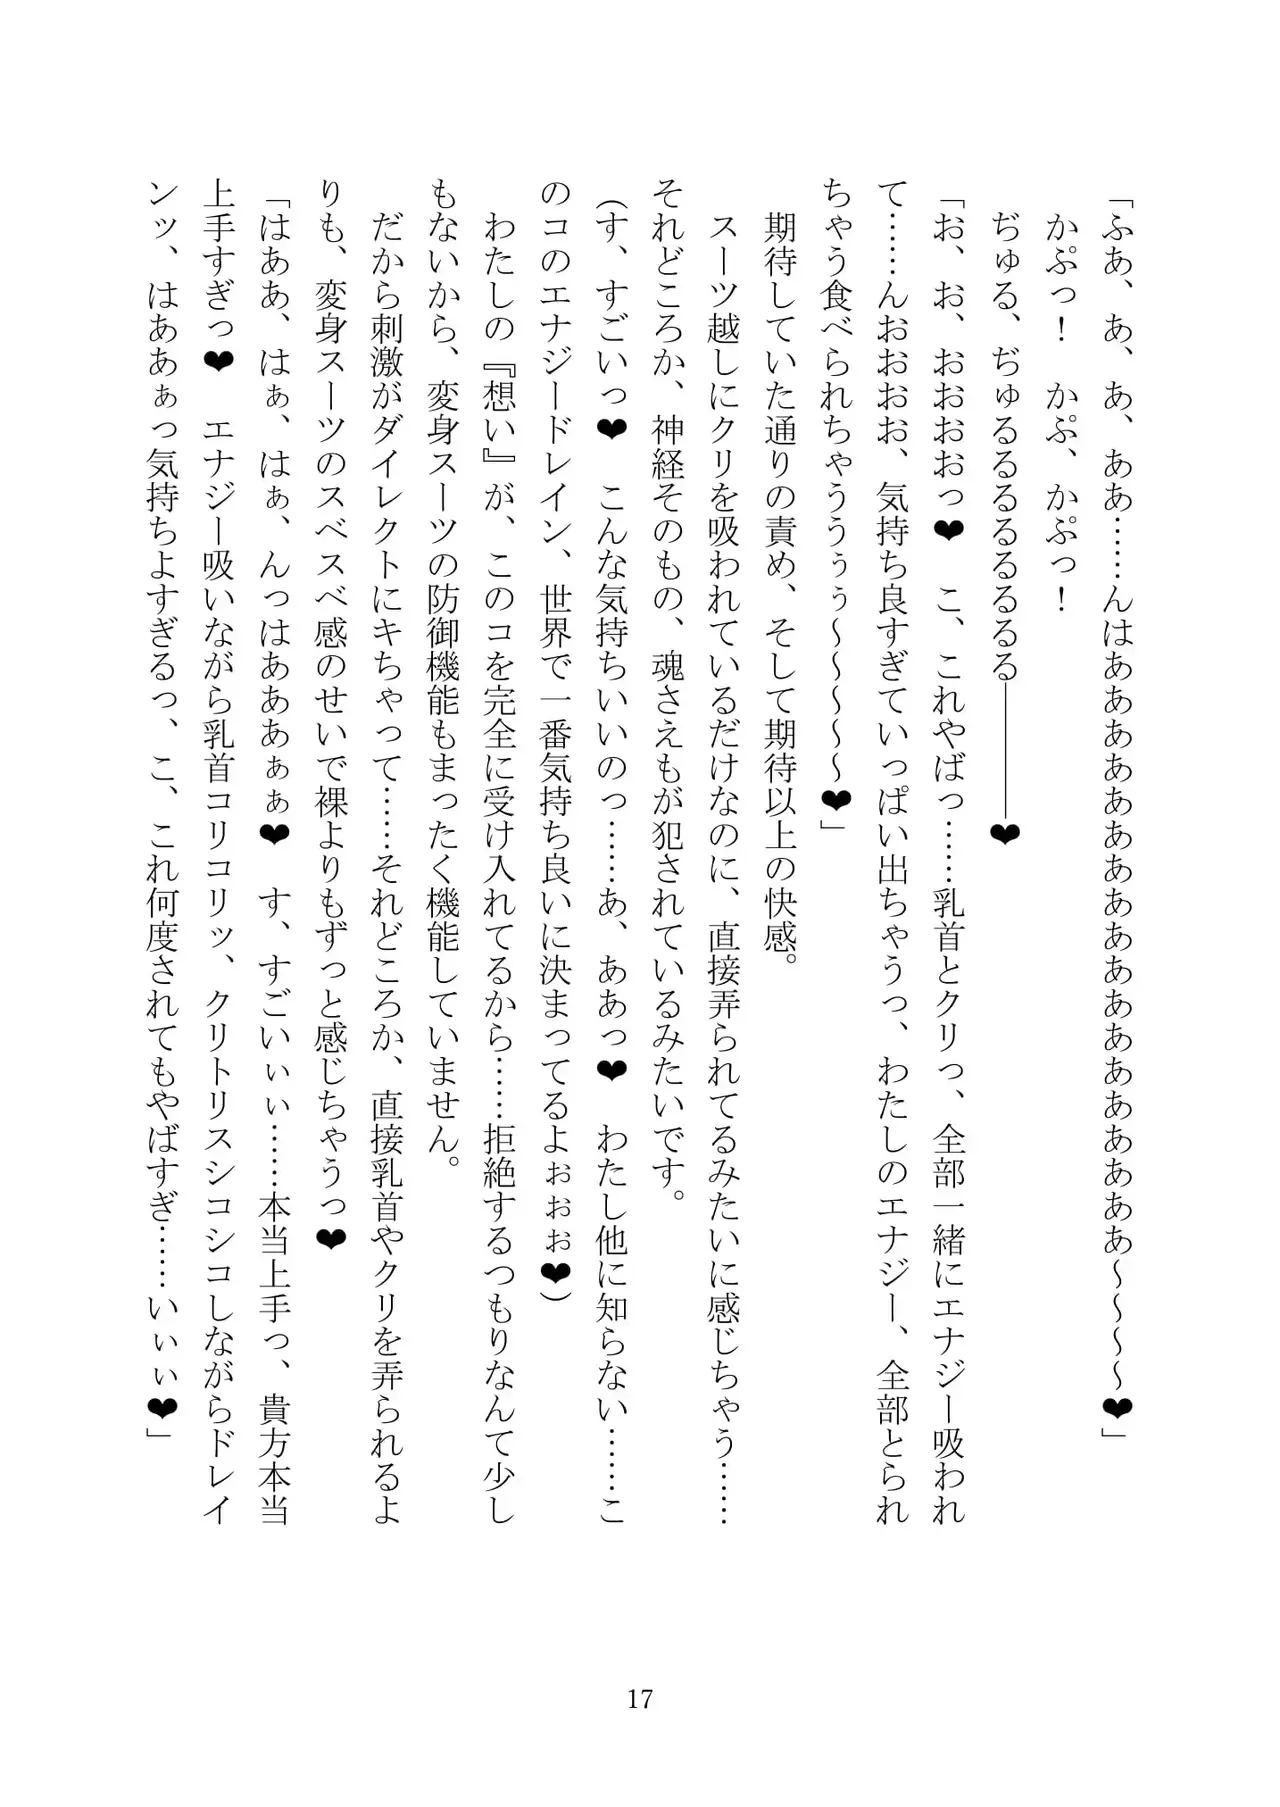 「ふあ、あ、あ、ああ……んはあああああああああああああああああああ～～～～❤」
　かぷっ！　かぷ、かぷっ！
　ぢゅる、ぢゅるるるるるるる――――❤
「お、お、おおおおっ❤　こ、これやばっ……乳首とクリっ、全部一緒にエナジー吸われ
て……んおおおおお、気持ち良すぎていっぱい出ちゃうっ、わたしのエナジー、全部とられ
ちゃう食べられちゃうううぅぅ～～～～～❤」
　期待していた通りの責め、そして期待以上の快感。
　スーツ越しにクリを吸われているだけなのに、直接弄られてるみたいに感じちゃう……
それどころか、神経そのもの、魂さえもが犯されているみたいです。
（す、すごいっ❤　こんな気持ちいいのっ……あ、ああっ❤　わたし他に知らない……こ
のコのエナジードレイン、世界で一番気持ち良いに決まってるよぉぉぉ❤）
　わたしの『想い』が、このコを完全に受け入れてるから……拒絶するつもりなんて少し
もないから、変身スーツの防御機能もまったく機能していません。
　だから刺激がダイレクトにキちゃって……それどころか、直接乳首やクリを弄られるよ
りも、変身スーツのスベスベ感のせいで裸よりもずっと感じちゃうっ❤
「はああ、はぁ、はぁ、んっはあああぁぁ❤　す、すごいぃぃ……本当上手っ、貴方本当
上手すぎっ❤　エナジー吸いながら乳首コリコリッ、クリトリスシコシコしながらドレイ
ンッ、はああぁっ気持ちよすぎるっ、こ、これ何度されてもやばすぎ……いぃぃ❤」
17